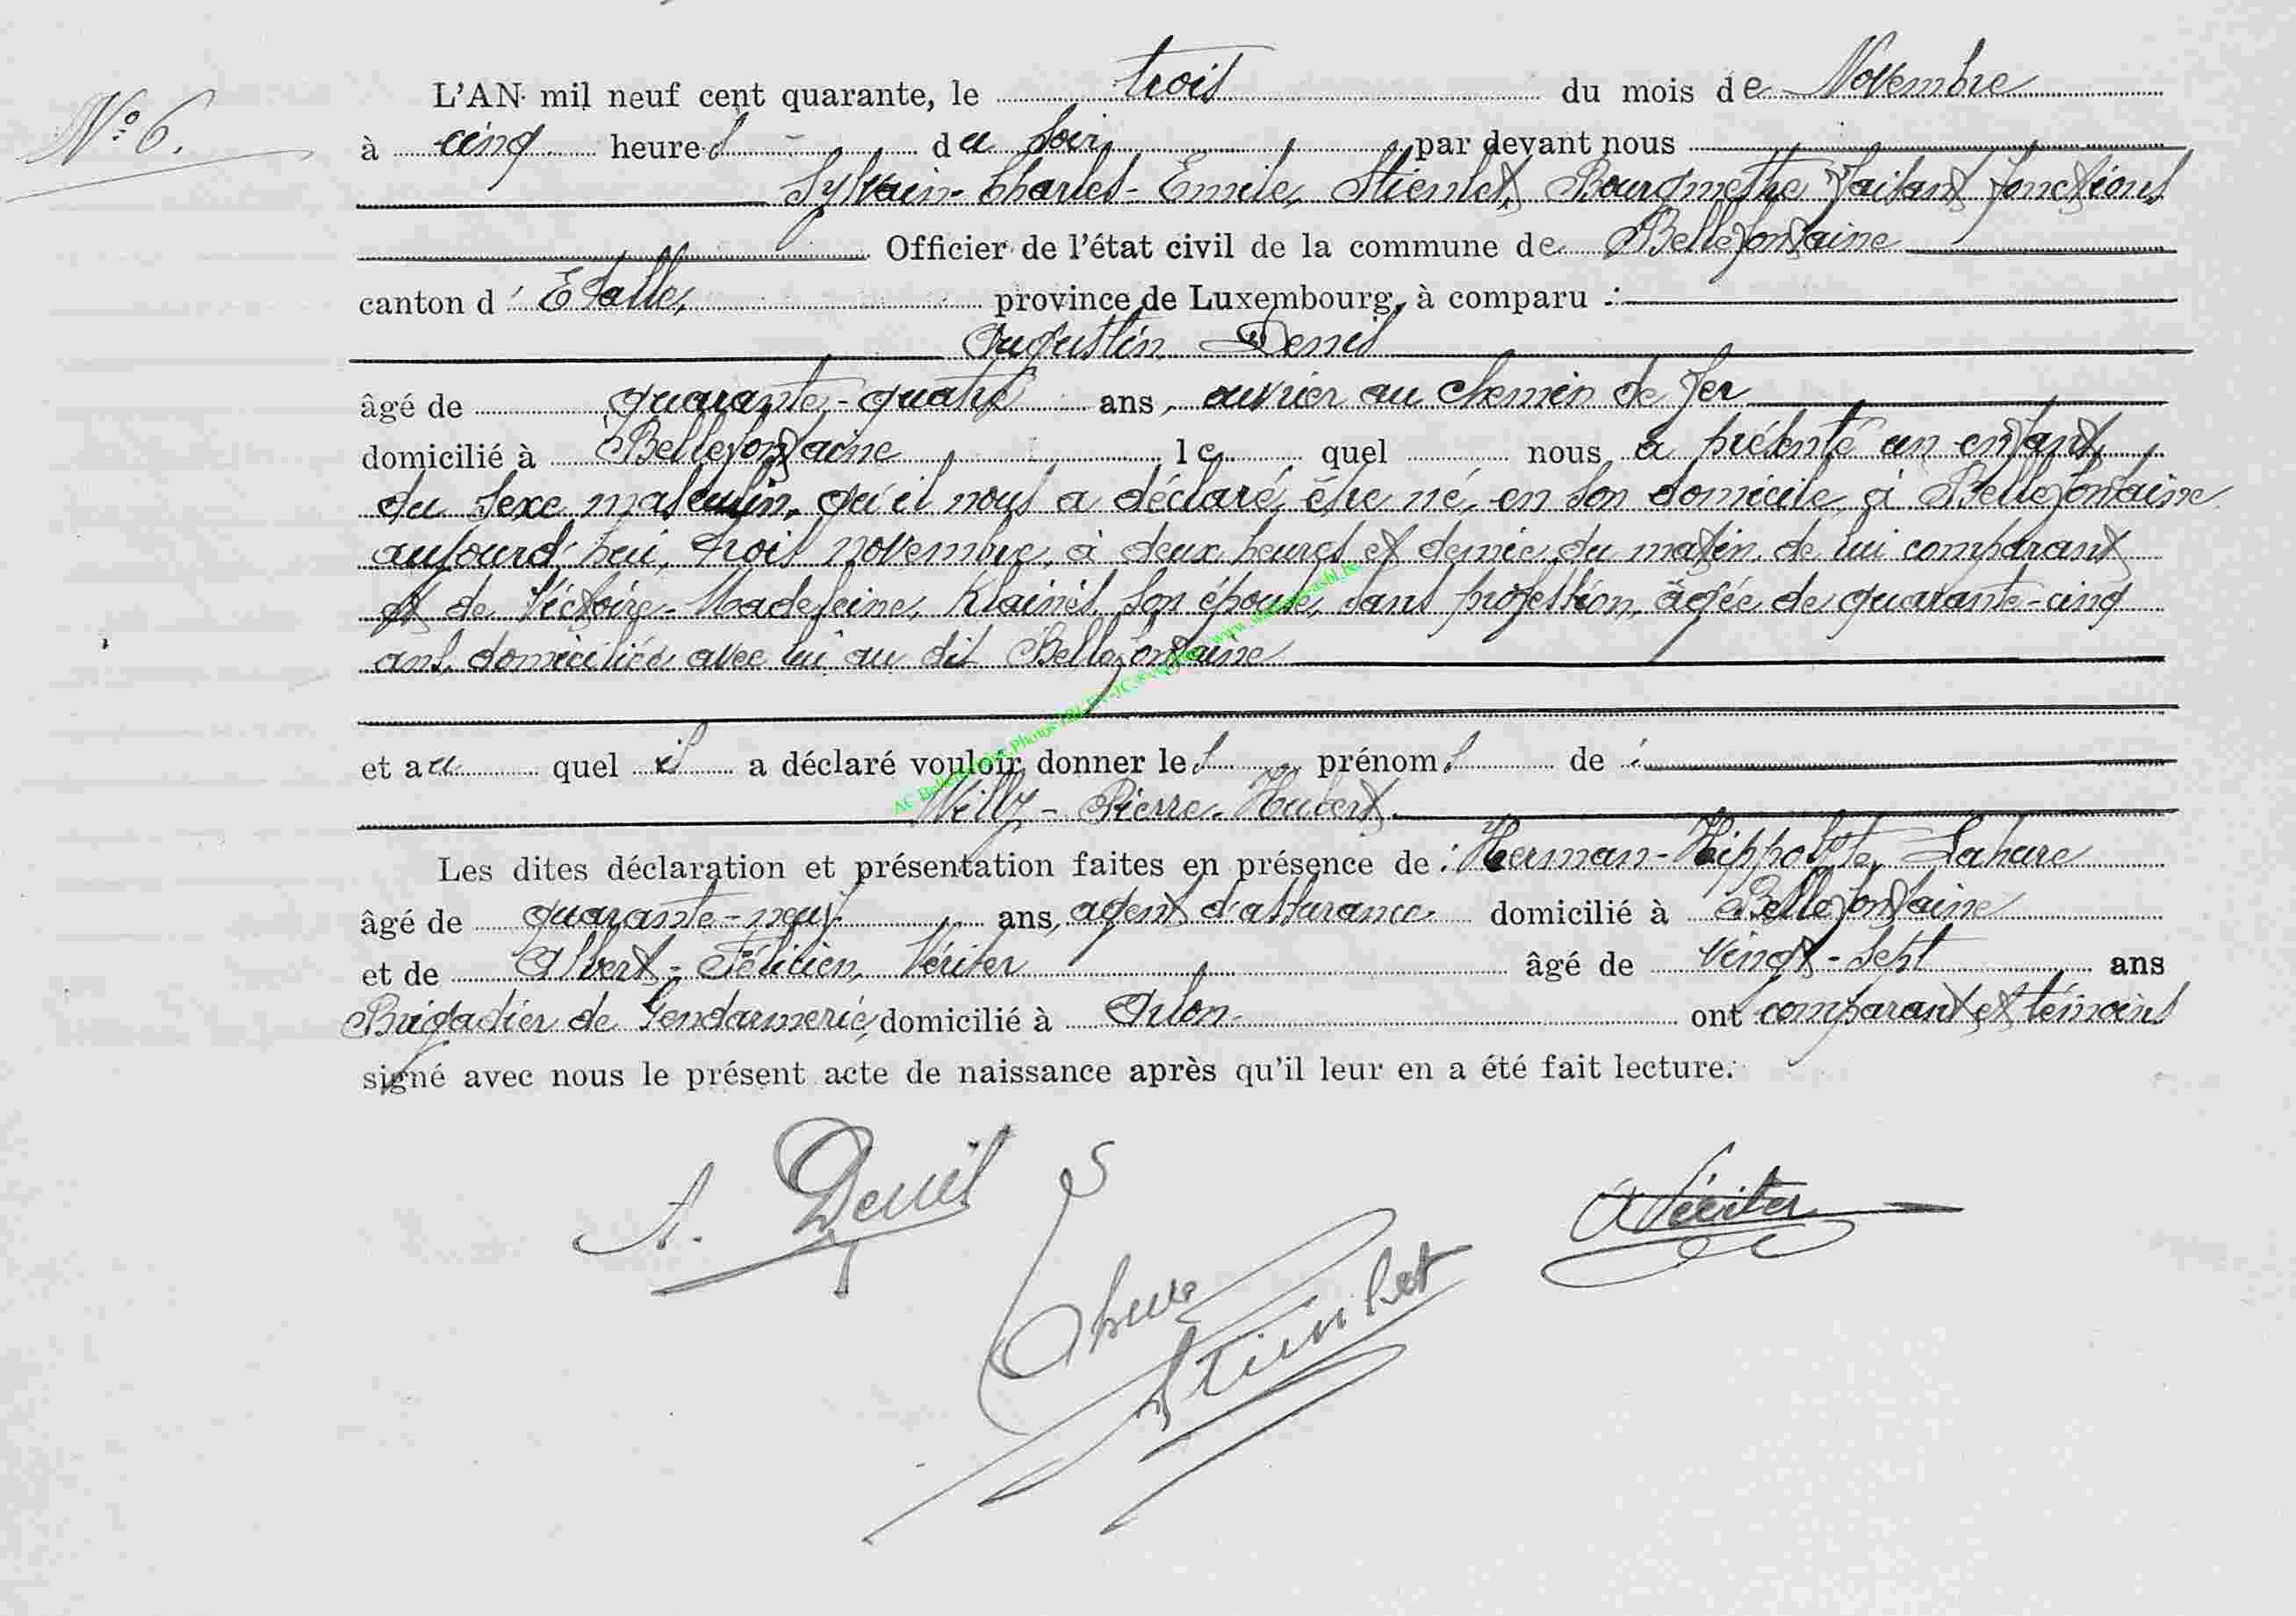 N° 6.
L'AN mil neuf cent quarante, le trois du mois de Novembre
à cinq heures du soir par devant nous
Sylvain-Charles-Emile, Stienlet, Bourgmestre faisant fonctions
Officier de l'état civil de la commune de Bellefontaine
canton d'Etalle, province de Luxembourg, à comparu :
Augustin Denis
âgé de quarante-quatre ans, ouvrier au chemin de fer
domicilié à Bellefontaine lequel nous a présenté un enfant
du sexe masculin, qu'il nous a déclaré, être né, en son domicile, à Bellefontaine
aujourd'hui, trois novembre, à deux heures et demie du matin, de lui comparant
et de Victoire-Madeleine, Klainis, son épouse, sans profession, âgée de quarante-cinq
ans, domiciliée avec lui au dit Bellefontaine
et auquel il a déclaré vouloir donner les prénoms de :
Willy - Pierre - Hubert.
Les dites déclaration et présentation faites en présence de : Herman-Hippolyte, Lahure
âgé de quarante-neuf ans, agent d'assurance domicilié à Bellefontaine
et de Albert-Félicien, Vériter âgé de vingt-sept ans
Brigadier de Gendarmerie, domicilié à Arlon ont comparant et témoins
signé avec nous le présent acte de naissance après qu'il leur en a été fait lecture.
A. Denis
A Vériter
Lahure
Stienlet